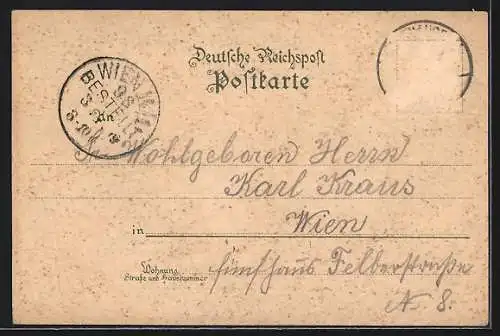 Deutsche Reichspost
Postkarte
WIEN
98
BESTELLT
An
Sr. Wohlgeboren Herrn
Karl Kraus
in Wien
Wohnung
Straße und Hausnummer
fünfhaus Felberstraße
N. 8.